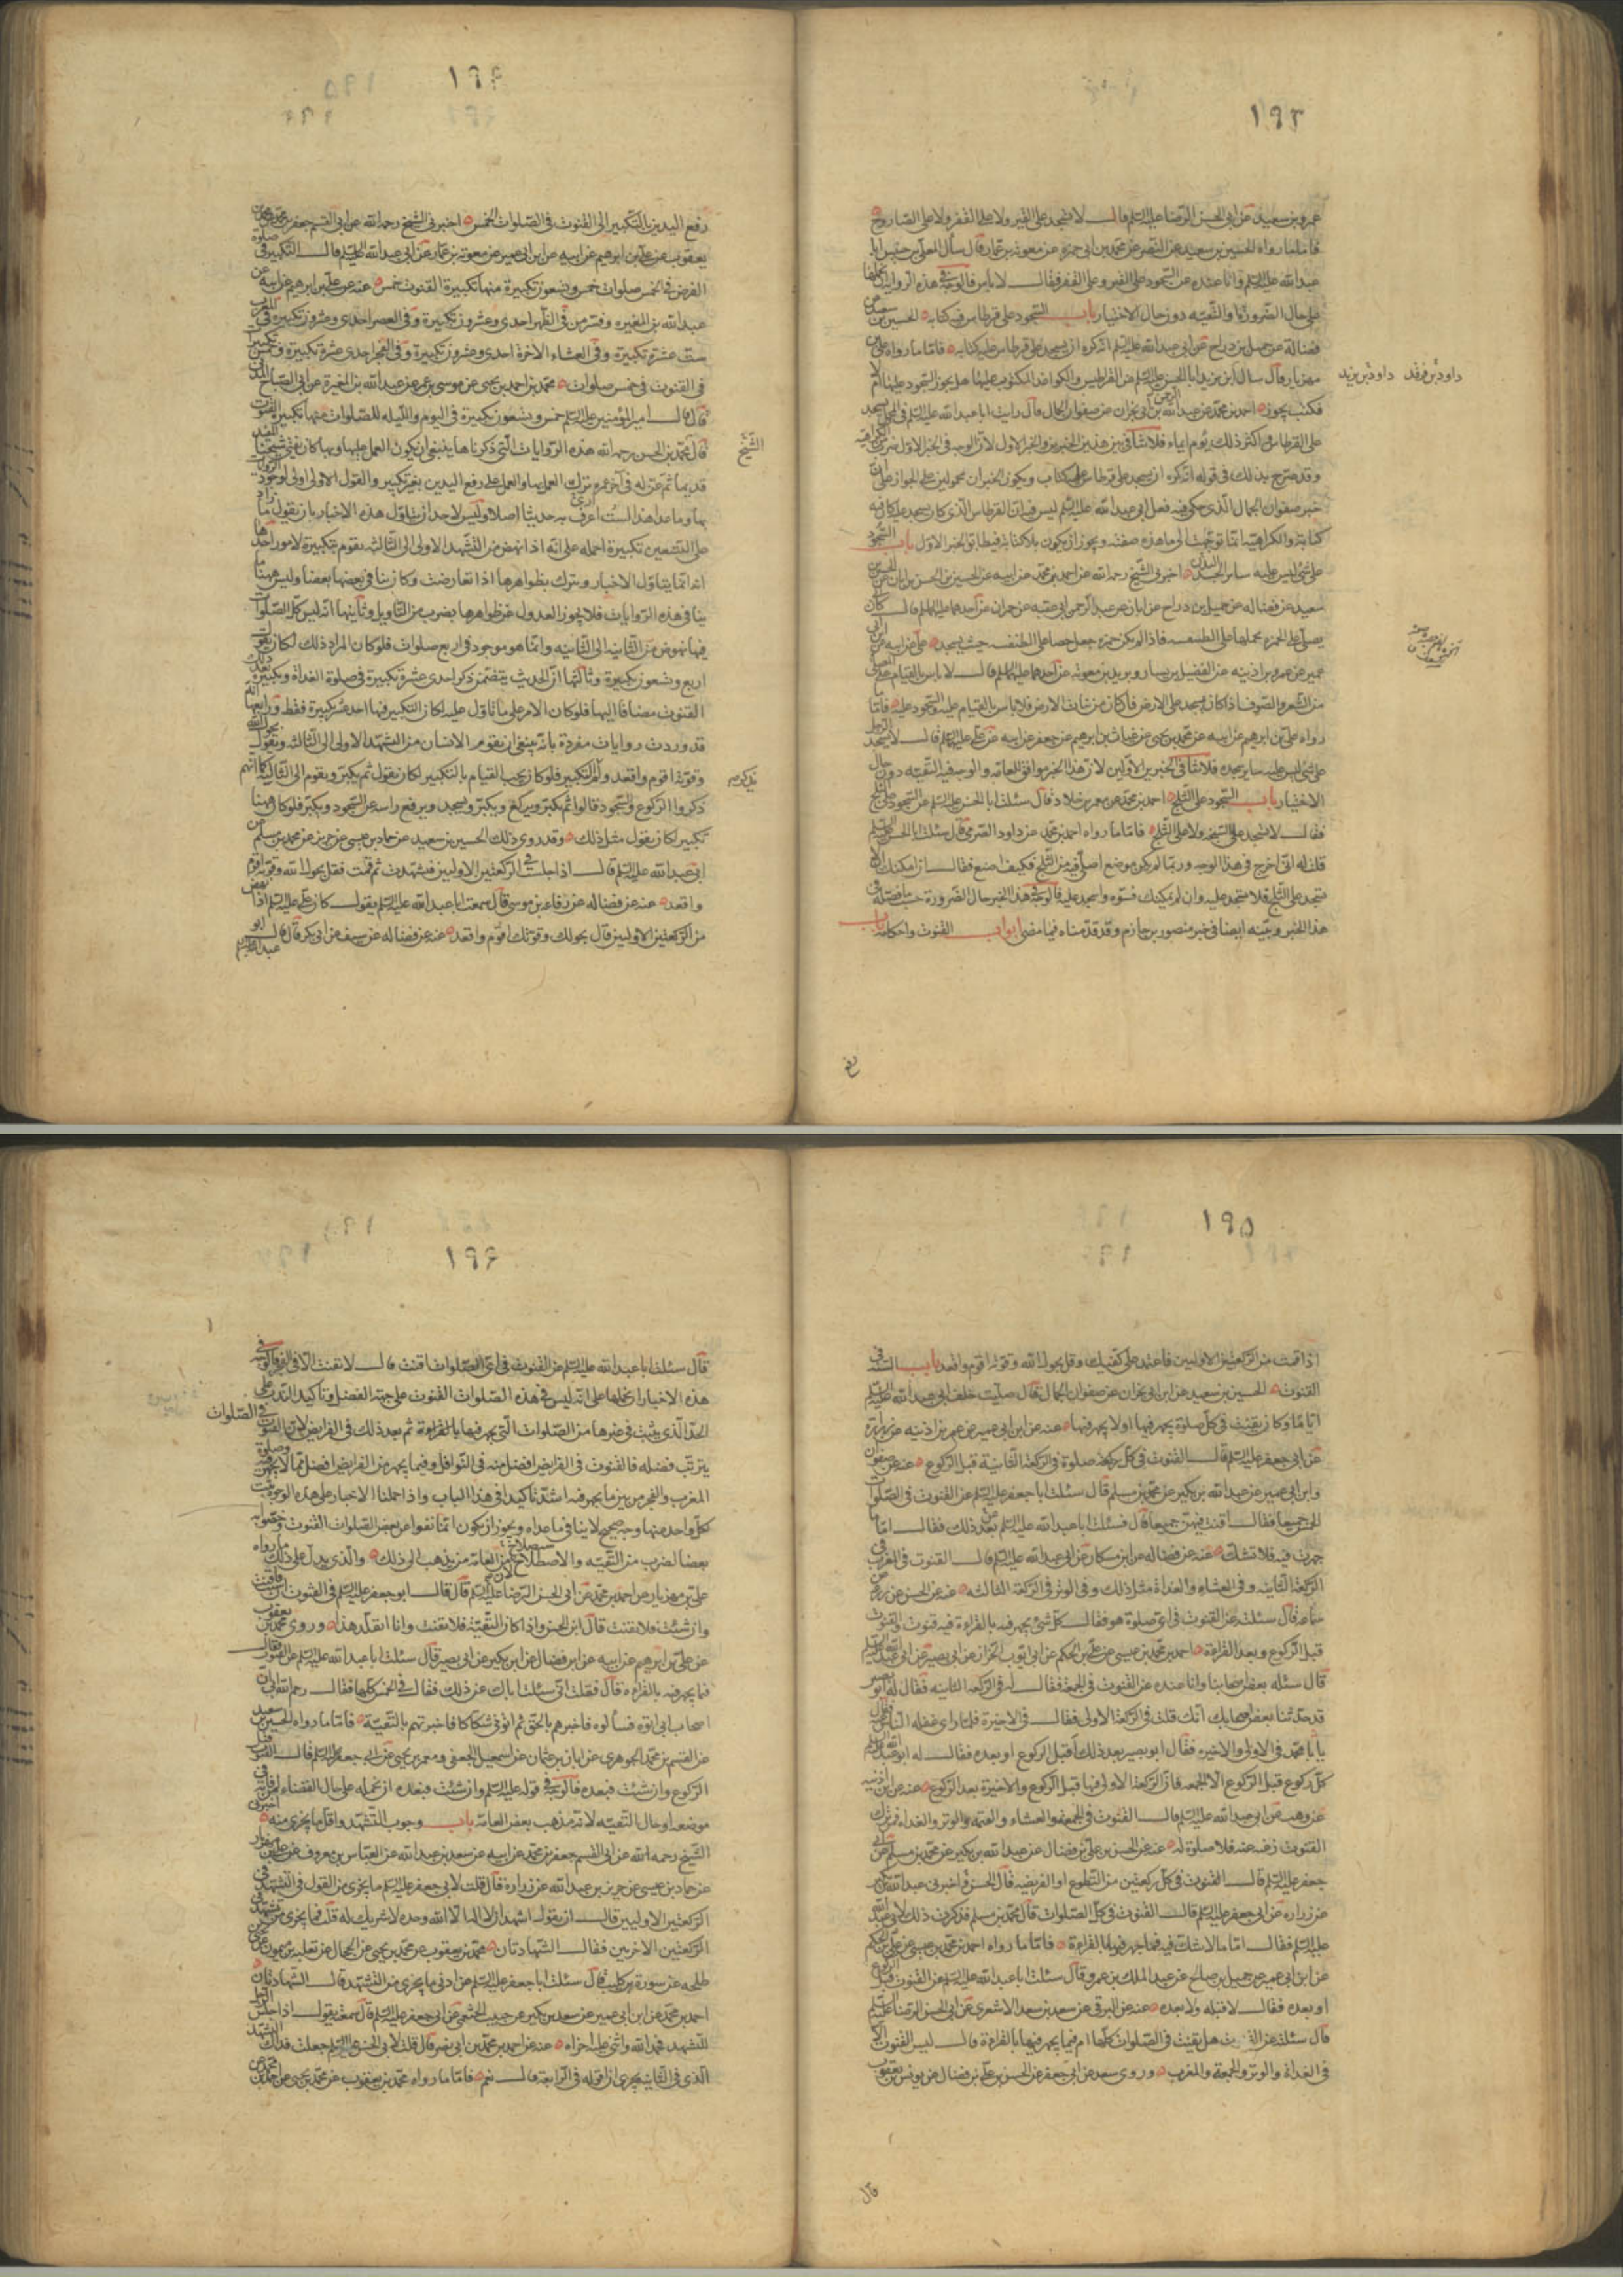 ١٩٣
عمرو بن سعيد عن ابى الحسن الرضا عليه السلم قالـــ لا تسجد على القير ولا على القفر ولا على الصاروج
فاما ما رواه الحسين بن سعيد عن النضر عن محمد بن ابى حمزه عن معويه بن عمار قال سأل المعلى بن خنيس ابا
عبد الله عليه السلم وانا عنده عن السجود على القير وعلى القفر فقالـــ لا باس فالوجه فى هذه الرواية ان نحملها
على حال الضرورة او التقيه دون حال الاختيار بابـــ السجود على قرطاس فيه كتابه الحسين بن سعيد عن
فضاله عن جميل بن دراج عن ابى عبد الله عليه السلم انه كره ان يسجد على قرطاس عليه كتابه فاما ما رواه على بن
مهزيار قال سال داود بن يزيد ابا الحسن عليه السلم عن القراطيس والكواغذ المكتوب عليها هل يجوز السجود عليها ام لا
داود بن فرقد داود بن يزيد
فكتب يجوز احمد بن محمد عن عبد الرحمن بن ابى نجران عن صفوان الجمال قال رايت ابا عبد الله عليه السلم فى المحمل يسجد
على القرطاس واكثر ذلك يؤم ايماء فلا تنافى بين هذين الخبرين والخبر الاول لان الوجه فى الخبر الاول ضرب من الكراهيه
وقد صرح بذلك فى قوله انه كره ان يسجد على قرطاس عليه كتاب ويكون الخبران محمولين على الجواز على ان
خبر صفوان الجمال الذى حكى فيه فعل ابى عبد الله عليه السلم ليس فيه ان القرطاس الذى كان يسجد عليه كان فيه
كتابة والكراهية انما توجهت الى ما هذه صفته ويجوز ان يكون بلا كتابة فيطابق الخبر الاول بابـــ السجود
على شئ ليس عليه سائر الجسد اخبرنى الشيخ رحمه الله عن احمد بن محمد عن ابيه عن الحسين بن الحسن بن ابان عن الحسين بن
سعيد عن فضاله عن جميل بن دراج عن ابان عن عبد الرحمن بن ابى عبد الله عن حمران عن احدهما عليهما السلم قالـــ كان ابى
يصلى على الخمره يجعلها على الطنفسه فاذا لم يكن خمره جعل حصا على الطنفسه حيث يسجد على عن ابيه عن ابن ابى
عمير عن عمر بن اذينه عن الفضيل بن يسار وبريد بن معويه عن احدهما عليهما السلم قالـــ لا باس بالقيام على المصلى
من الشعر والصوف اذا كان يسجد على الارض فان كان من نبات الارض فلا باس بالقيام عليه والسجود عليه فاما ما
رواه على بن ابرهيم عن ابيه عن محمد بن يحيى عن غياث بن ابرهيم عن جعفر عن ابيه عن على عليه السلم قالـــ لا يسجد الرجل
على شئ ليس عليه سائر جسده فلا تنافى الخبرين الاولين لان هذا الخبر موافق للعامه والوجه فيه التقيه دون حال
الاختيار بابـــ السجود على الثلج احمد بن محمد عن معمر بن خلاد قال سئلت ابا الحسن عليه السلم عن السجود على الثلج
فقالـــ لا تسجد على السبخه ولا على الثلج فاما ما رواه احمد بن محمد عن داود الصرمى قال سئلت ابا الحسن عليه السلم
قلت له انى اخرج فى هذا الوجه وربما لم يكن موضع اصلى فيه من الثلج فكيف اصنع فقالـــ ان امكنك ان لا
تسجد على الثلج فلا تسجد عليه وان لم يمكنك فسوه واسجد عليه فالوجه فى هذا الخبر حال الضرورة حسب ما فصله فى
هذا الخبر وبينه ايضا فى خبر منصور بن حازم وقد قدمناه فيما مضى ابوابـــ القنوت واحكامه بابـــ
رفع
١٩٤
رفع اليدين بالتكبير الى القنوت فى الصلوات الخمس اخبرنى الشيخ رحمه الله عن ابى القسم جعفر بن محمد عن محمد بن
يعقوب عن على بن ابرهيم عن ابيه عن ابن ابى عمير عن معويه بن عمار عن ابى عبد الله عليه السلم قالـــ التكبير فى صلوة
الفرض فى الخمس صلوات خمس وتسعون تكبيرة منها تكبيرة القنوت خمس عنه عن على بن ابرهيم عن ابيه عن
عبد الله بن المغيره وفسرهن فى الظهر احدى وعشرون تكبيرة وفى العصر احدى وعشرون تكبيرة وفى المغرب
ست عشرة تكبيرة وفى العشاء الاخرة احدى وعشرون تكبيرة وفى الفجر احدى عشرة تكبيرة وخمس تكبيرات
فى القنوت فى خمس صلوات محمد بن احمد بن يحيى عن موسى بن عمر عن عبد الله بن المغيرة عن ابى الصباح المزنى
قال قالـــ امير المؤمنين عليه السلم خمس وتسعون تكبيرة فى اليوم والليله للصلوات منها تكبيرة القنوت
قال محمد بن الحسن رحمه الله هذه الروايات التى ذكرناها ينبغى ان يكون العمل عليها وبها كان يفتى شيخنا المفيد
الشيخ
قديما ثم عن له فى آخر عمره ترك العمل بها والعمل على رفع اليدين بغير تكبير والقول الاول اولى لوجود الروايات
بها وما عدا هذا لست اعرف به حديثا اصلا وليس لاحد ان يتاول هذه الاخبار بان يقول ما زاد
على التسعين تكبيرة احمله على انه اذا نهض من التشهد الاول الى الثالثه يقوم بتكبيرة لامور احدها
انه انما يتاول الاخبار ويترك بظواهرها اذا تعارضت وكان ينافى بعضها بعضا وليس ههنا ما
ينافى هذه الروايات فلا يجوز العدول عن ظواهرها بضرب من التاويل وثانيها انه ليس كل الصلوات
فيها نهوض من الثانيه الى الثالثه وانما هو موجود فى اربع صلوات فلو كان المراد ذلك لكان يقول
اربع وتسعون تكبيرة وثالثها ان الحديث يتضمن ذكر احدى عشرة تكبيرة فى صلوة الغداة وتكبيرة بعد ذلك
القنوت مضافا اليها فلو كان الامر على ما تاول عليه لكان التكبير فيها احد عشر تكبيرة فقط ورابعها انه
قد وردت روايات مفردة بانه ينبغى ان يقوم الانسان من التشهد الاول الى الثالثه ويقول بحول الله
وقوته اقوم واقعد ولم يذكر التكبير فلو كان يجب القيام بالتكبير لكان يقول ثم يكبر ويقوم الى الثالثه كما انهم
ذكروا الركوع والسجود قالوا ثم يكبر ويركع ويكبر ويسجد ويرفع راسه عن السجود ويكبر فلو كان ههنا
تكبير لكان يقول مثل ذلك وقد روى ذلك الحسين بن سعيد عن حماد بن عيسى عن حريز عن محمد بن مسلم عن
ابى عبد الله عليه السلم قالـــ اذا جلست فى الركعتين الاوليين فتشهدت ثم قمت فقل بحول الله وقوته اقوم
واقعد عنه عن فضاله عن رفاعه بن موسى قال سمعت ابا عبد الله عليه السلم يقولـــ كان على عليه السلم اذا نهض
من الركعتين الاوليين قال بحولك وقوتك اقوم واقعد عنه عن فضاله عن سيف عن ابى بكر قال قالـــ ابو
عبد الله عليه السلم
١٩٥
اذا قمت من الركعتين الاوليين فاعتمد على كفيك وقل بحول الله وقوته اقوم واقعد بابـــ السنه فى
القنوت الحسين بن سعيد عن ابن ابى نجران عن صفوان الجمال قال صليت خلف ابى عبد الله عليه السلم
اياما وكان يقنت فى كل صلوة يجهر فيها او لا يجهر فيها عنه عن ابن ابى عمير عن عمر بن اذينه عن زرارة
عن ابى جعفر عليه السلم قالـــ القنوت فى كل صلوة فى الركعة الثانية قبل الركوع عنه عن صفوان
وابن ابى عمير عن عبد الله بن بكير عن محمد بن مسلم قال سئلت ابا جعفر عليه السلم عن القنوت فى الصلوات
الخمس جميعا فقالـــ اقنت فيهن جميعا قال فسئلت ابا عبد الله عليه السلم بعد ذلك فقالـــ اما ما
جهرت فيه فلا تشك عنه عن فضاله عن ابن مسكان عن ابى عبد الله عليه السلم قالـــ القنوت فى المغرب فى
الركعة الثانيه وفى العشاء والغداة مثل ذلك وفى الوتر فى الركعة الثالثه عنه عن الحسن عن زرعه عن
سماعه قال سئلته عن القنوت فى اى صلوة هو فقالـــ كل شئ يجهر فيه بالقراءة فيه قنوت والقنوت
قبل الركوع وبعد القراءة احمد بن محمد بن عيسى عن على بن الحكم عن ابى ايوب الخزاز عن ابى بصير عن ابى عبد الله عليه السلم
قال سئله بعض اصحابنا وانا عنده عن القنوت فى الجمعة فقالـــ له فى الركعة الثانيه فقال له ابو بصير
قد حدثنا بعض اصحابك انك قلت فى الركعة الاولى فقالـــ فى الاخيرة فلما راى غفله الناس قال
يا با محمد فى الاولى والاخيره فقال ابو بصير بعد ذلك اقبل الركوع او بعده فقالـــ له ابو عبد الله
كل ركوع قبل الركوع الا الجمعه فان الركعة الاولى فيها قبل الركوع والاخيرة بعد الركوع عنه عن ابن اذينه
عن وهب عن ابى عبد الله عليه السلم قالـــ القنوت فى الجمعه والعشاء والعتمه والوتر والغداه فمن ترك
القنوت رغبه عنه فلا صلوة له عنه عن الحسن بن على بن فضال عن عبد الله بن بكير عن محمد بن مسلم عن ابى
جعفر عليه السلم قالـــ القنوت فى كل ركعتين من التطوع او الفريضه قال الحسن واخبرنى عبد الله بن بكير
عن زراره عن ابى جعفر عليه السلم قالـــ القنوت فى كل الصلوات قال محمد بن مسلم فذكرت ذلك لابى عبد الله
عليه السلم فقالـــ اما ما لا شك فيه فما جهر فيه بالقراءة فاما ما رواه احمد بن محمد بن عيسى عن على بن الحكم
عن ابن ابى عمير عن جميل بن صالح عن عبد الملك بن عمرو قال سئلت ابا عبد الله عليه السلم عن القنوت قبل الركوع
او بعده فقالـــ لا قبله ولا بعده عنه عن البرقى عن سعد بن سعد الاشعرى عن ابى الحسن الرضا عليه السلم
قال سئلته عن القنوت هل يقنت فى الصلوات كلها ام فيما يجهر فيها بالقراءة قالـــ ليس القنوت الا
فى الغداة والوتر والجمعة والمغرب وروى سعد عن ابى جعفر عن الحسن بن على بن فضال عن يونس بن يعقوب
قال
١٩٦
قال سئلت ابا عبد الله عليه السلم عن القنوت فى اى الصلوات اقنت قالـــ لا تقنت الا فى الفجر فالوجه فى
هذه الاخبار ان نحملها على انه ليس فى هذه الصلوات القنوت على جهة الفضل وتاكيد الندب على
الحد الذى يثبت فى غيرها من الصلوات التى يجهر فيها بالقراءة ثم بعد ذلك فى الفرايض لان القنوت فى الصلوات
يترتب فضله فالقنوت فى الفرايض افضل منه فى النوافل وفيما يجهر من الفرايض افضل مما لا يجهر فيه وصلوة
المغرب والفجر من بين ما يجهر فيه اشد تاكيدا فى هذا الباب واذا حملنا الاخبار على هذه الوجوه كانت
لكل واحد منها وجه صحيح لا ينافى ما عداه ويجوز ان يكون انما نفوا عن بعض الصلوات القنوت وخصوا به
بعضا لضرب من التقيه والاصطلاح لان من العامة من يذهب الى ذلك والذى يدل على ذلك ما رواه
على بن مهزيار عن احمد بن محمد عن ابى الحسن الرضا عليه السلم قال قالـــ ابو جعفر عليه السلم فى القنوت ان شئت فاقنت
وان شئت فلا تقنت قال ابو الحسن واذا كان التقية فلا تقنت وانا اتقلد هذا وروى محمد بن يعقوب
عن على بن ابرهيم عن ابيه عن ابن فضال عن ابن بكير عن ابى بصير قال سئلت ابا عبد الله عليه السلم عن القنوت فقالـــ
فيما يجهر فيه بالقراءه قال فقلت انى سئلت اباك عن ذلك فقالـــ فى الخمس كلها فقالـــ رحم الله ابى ان
اصحاب ابى اتوه فسالوه فاخبرهم بالحق ثم اتونى شكاكا فاخبرتهم بالتقية فاما ما رواه الحسين بن سعيد
عن القسم بن محمد الجوهرى عن ابان بن عثمان عن اسمعيل الجعفى ومعمر بن يحيى عن ابى جعفر عليه السلم قالـــ القنوت قبل
الركوع وان شئت فبعده فالوجه فى قوله عليه السلم وان شئت فبعده ان نحمله على حال القضاء لمن فاته فى
موضعه او حال التقيه لانه مذهب بعض العامة بابـــ وجوب التشهد واقل ما يجزى منه اخبرنى
الشيخ رحمه الله عن ابى القسم جعفر بن محمد عن ابيه عن سعد بن عبد الله عن العباس بن معروف عن على بن مهزيار
عن حماد بن عيسى عن حريز بن عبد الله عن زرارة قال قلت لابى جعفر عليه السلم ما يجزى من القول فى التشهد فى
الركعتين الاوليين قالـــ ان يقولـــ اشهد ان لا اله الا الله وحده لا شريك له قلت فما يجزى من تشهد
الركعتين الاخريين فقالـــ الشهادتان محمد بن يعقوب عن محمد بن يحيى عن الحجال عن ثعلبه بن ميمون عن يحيى بن
طلحه عن سورة بن كليب قال سئلت ابا جعفر عليه السلم عن ادنى ما يجزى من التشهد قالـــ الشهادتان
احمد بن محمد عن ابن ابى عمير عن سعد بن بكير عن حبيب الخثعمى عن ابى جعفر عليه السلم قال سمعته يقولـــ اذا جلس الرجل
للتشهد فحمد الله واثنى عليه اجزاه عنه عن احمد بن محمد بن ابى نصر قال قلت لابى الحسن عليه السلم جعلت فداك التشهد
الذى فى الثانيه يجزى ان اقوله فى الرابعة قالـــ نعم فاما ما رواه محمد بن يعقوب عن محمد بن يحيى عن احمد بن محمد عن